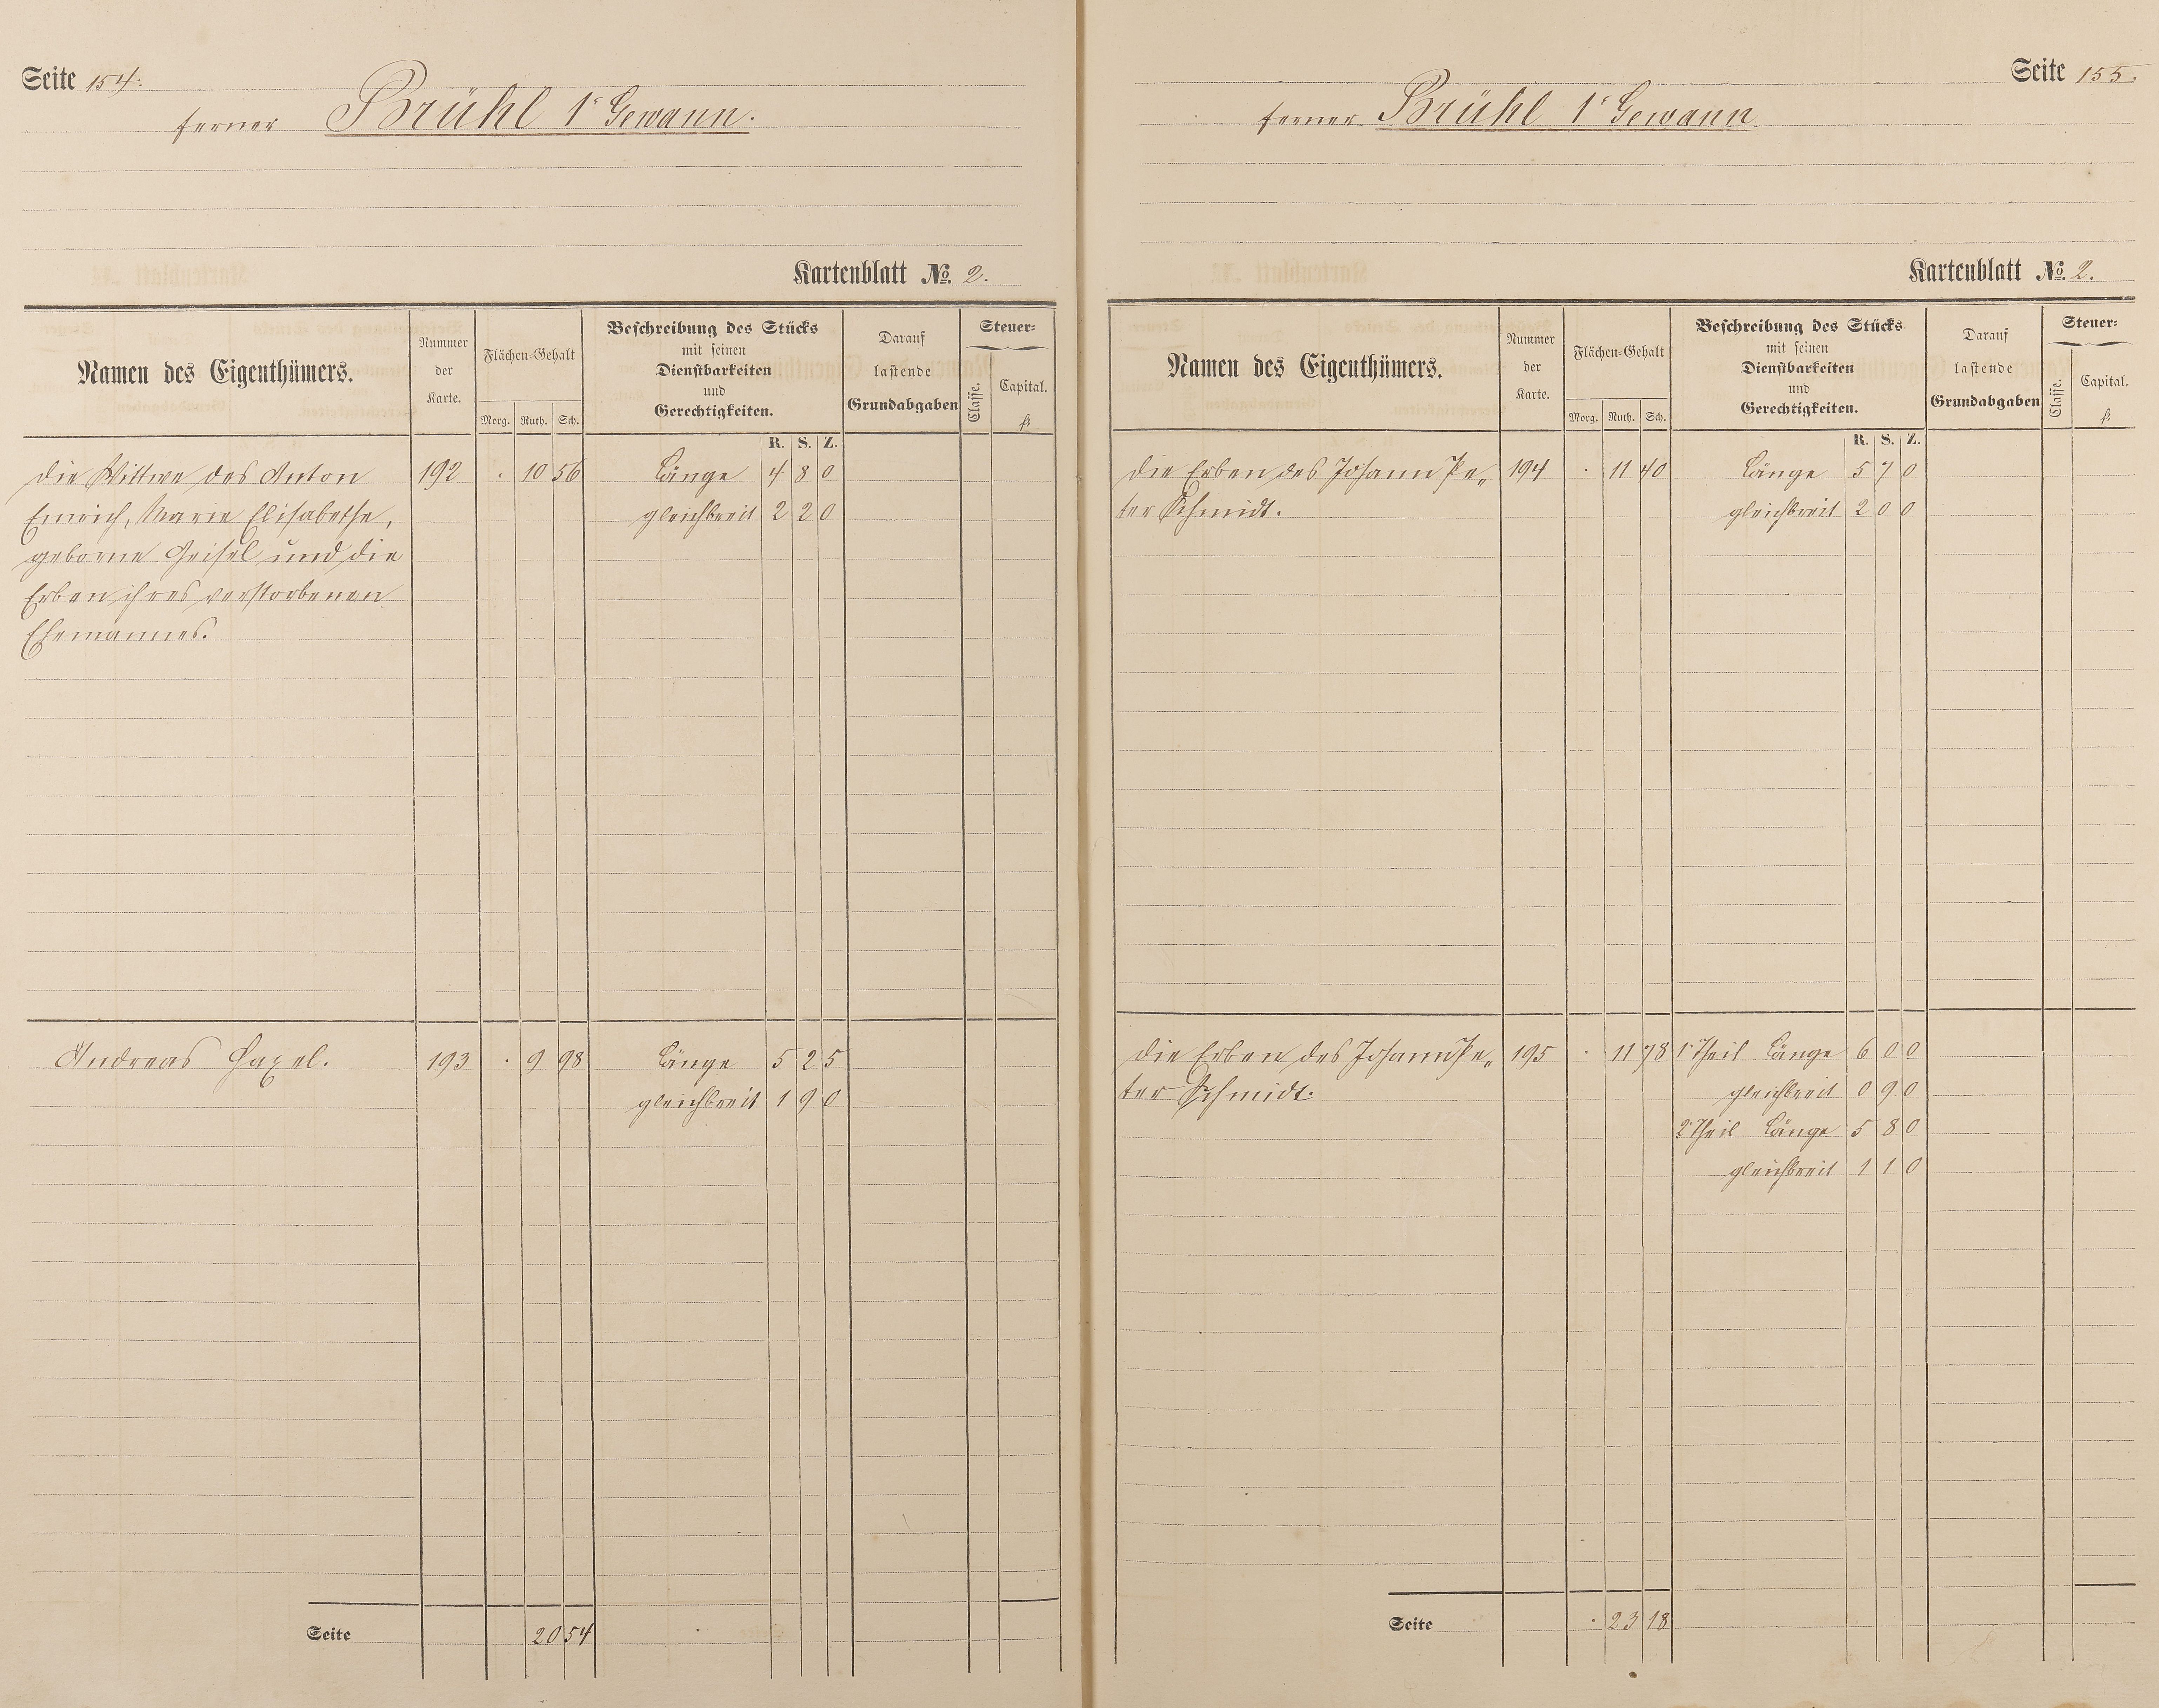 Seite 154.
ferner Brühl 1r Gewann.
Kartenblatt No. 2.
Namen des Eigenthümers.
Nummer
der
Karte.
Flächen-Gehalt
Morg. Ruth. Sch.
Beschreibung des Stücks
mit seinen
Dienstbarkeiten
und
Gerechtigkeiten.
Darauf
lastende
Grundabgaben
Steuer-
Classe. Capital.
fl.
R. S. Z.
Die Wittwe des Anton 192 . 10 56 Länge 4 8 0
Emrich, Marie Elisabethe, gleichbreit 2 2 0
geborne Geisel und die
Erben ihres verstorbenen
Ehemannes.
Andreas Haxel. 193 . 9 98 Länge 5 2 5
gleichbreit 1 9 0
Seite 20 54
Seite 155.
ferner Brühl 1r Gewann
Kartenblatt No. 2.
Namen des Eigenthümers.
Nummer
der
Karte.
Flächen-Gehalt
Morg. Ruth. Sch.
Beschreibung des Stücks
mit seinen
Dienstbarkeiten
und
Gerechtigkeiten.
Darauf
lastende
Grundabgaben
Steuer-
Classe. Capital.
fl.
R. S. Z.
Die Erben des Johann Pe„ 194 . 11 40 Länge 5 7 0
ter Schmidt. gleichbreit 2 0 0
Die Erben des Johann Pe„ 195 . 11 78 1r Theil Länge 6 0 0
ter Schmidt. gleichbreit 0 9 0
2r Theil Länge 5 8 0
gleichbreit 1 1 0
Seite . 23 18